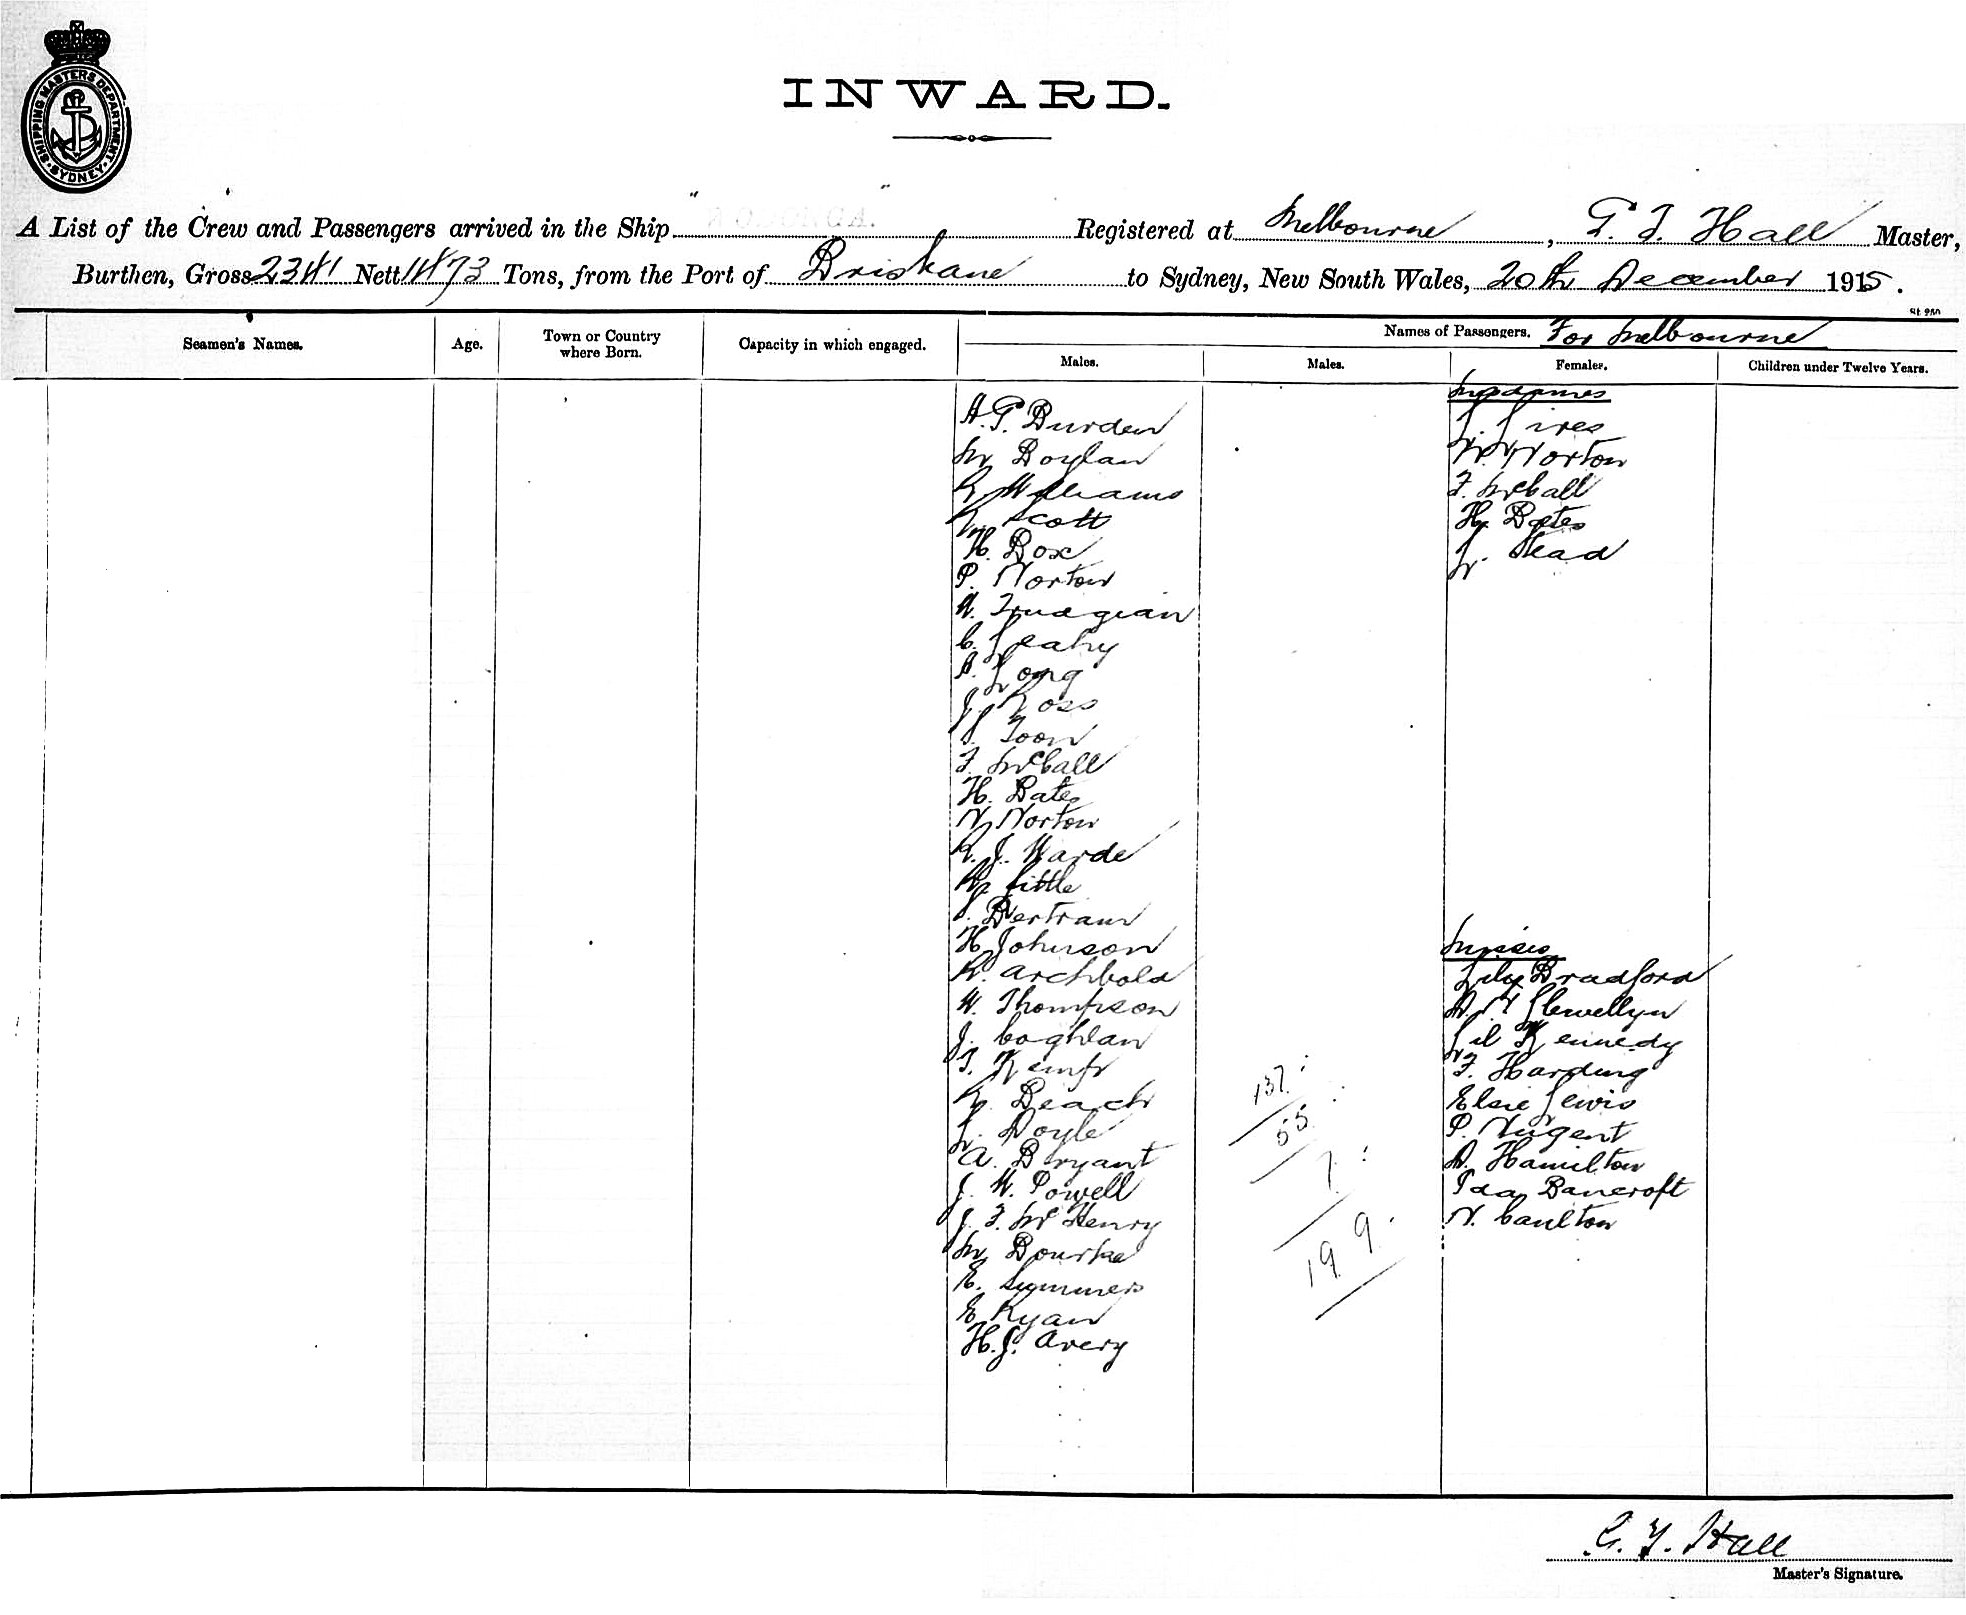 SHIPPING MASTERS DEPARTMENT. SYDNEY.
INWARD.
A List of the Crew and Passengers arrived in the Ship Registered at Melbourne, Hall Master,
Burthen, Gross 2341 Nett 1473 Tons, from the Port of Brisbane to Sydney, New South Wales, 20th December 1915.
Seamen's Names.
Age.
Town or Country where Born.
Capacity in which engaged.
Names of Passengers. For Melbourne
Males.
Males.
Females.
Children under Twelve Years.
Burden
M Boylan
R Williams
Scott
H. Box
P. Norton
A. Trudgian
C. Leahy
Long
J. Ross
J. Toon
F. McCall
H. Bates
N Norton
R. J. Warde
R. Little
J. Bertram
H Johnson
R. Archbold
W. Thompson
J. Coghlan
T. Kemp
R. Beach
L. Doyle
A. Bryant
J. W. Powell
J. F. McHenry
M Bourke
E. Summers
E Ryan
H. J. Avery
137
55
7
199
Mesdames
Norton
F. McCall
H. Bates
L. Head
Misses
Lily Bradford
Llewellyn
Lil Kennedy
F. Harding
Elsie Lewis
P. Nugent
D. Hamilton
Ida Bancroft
N. Caulton
Hall
Master's Signature.